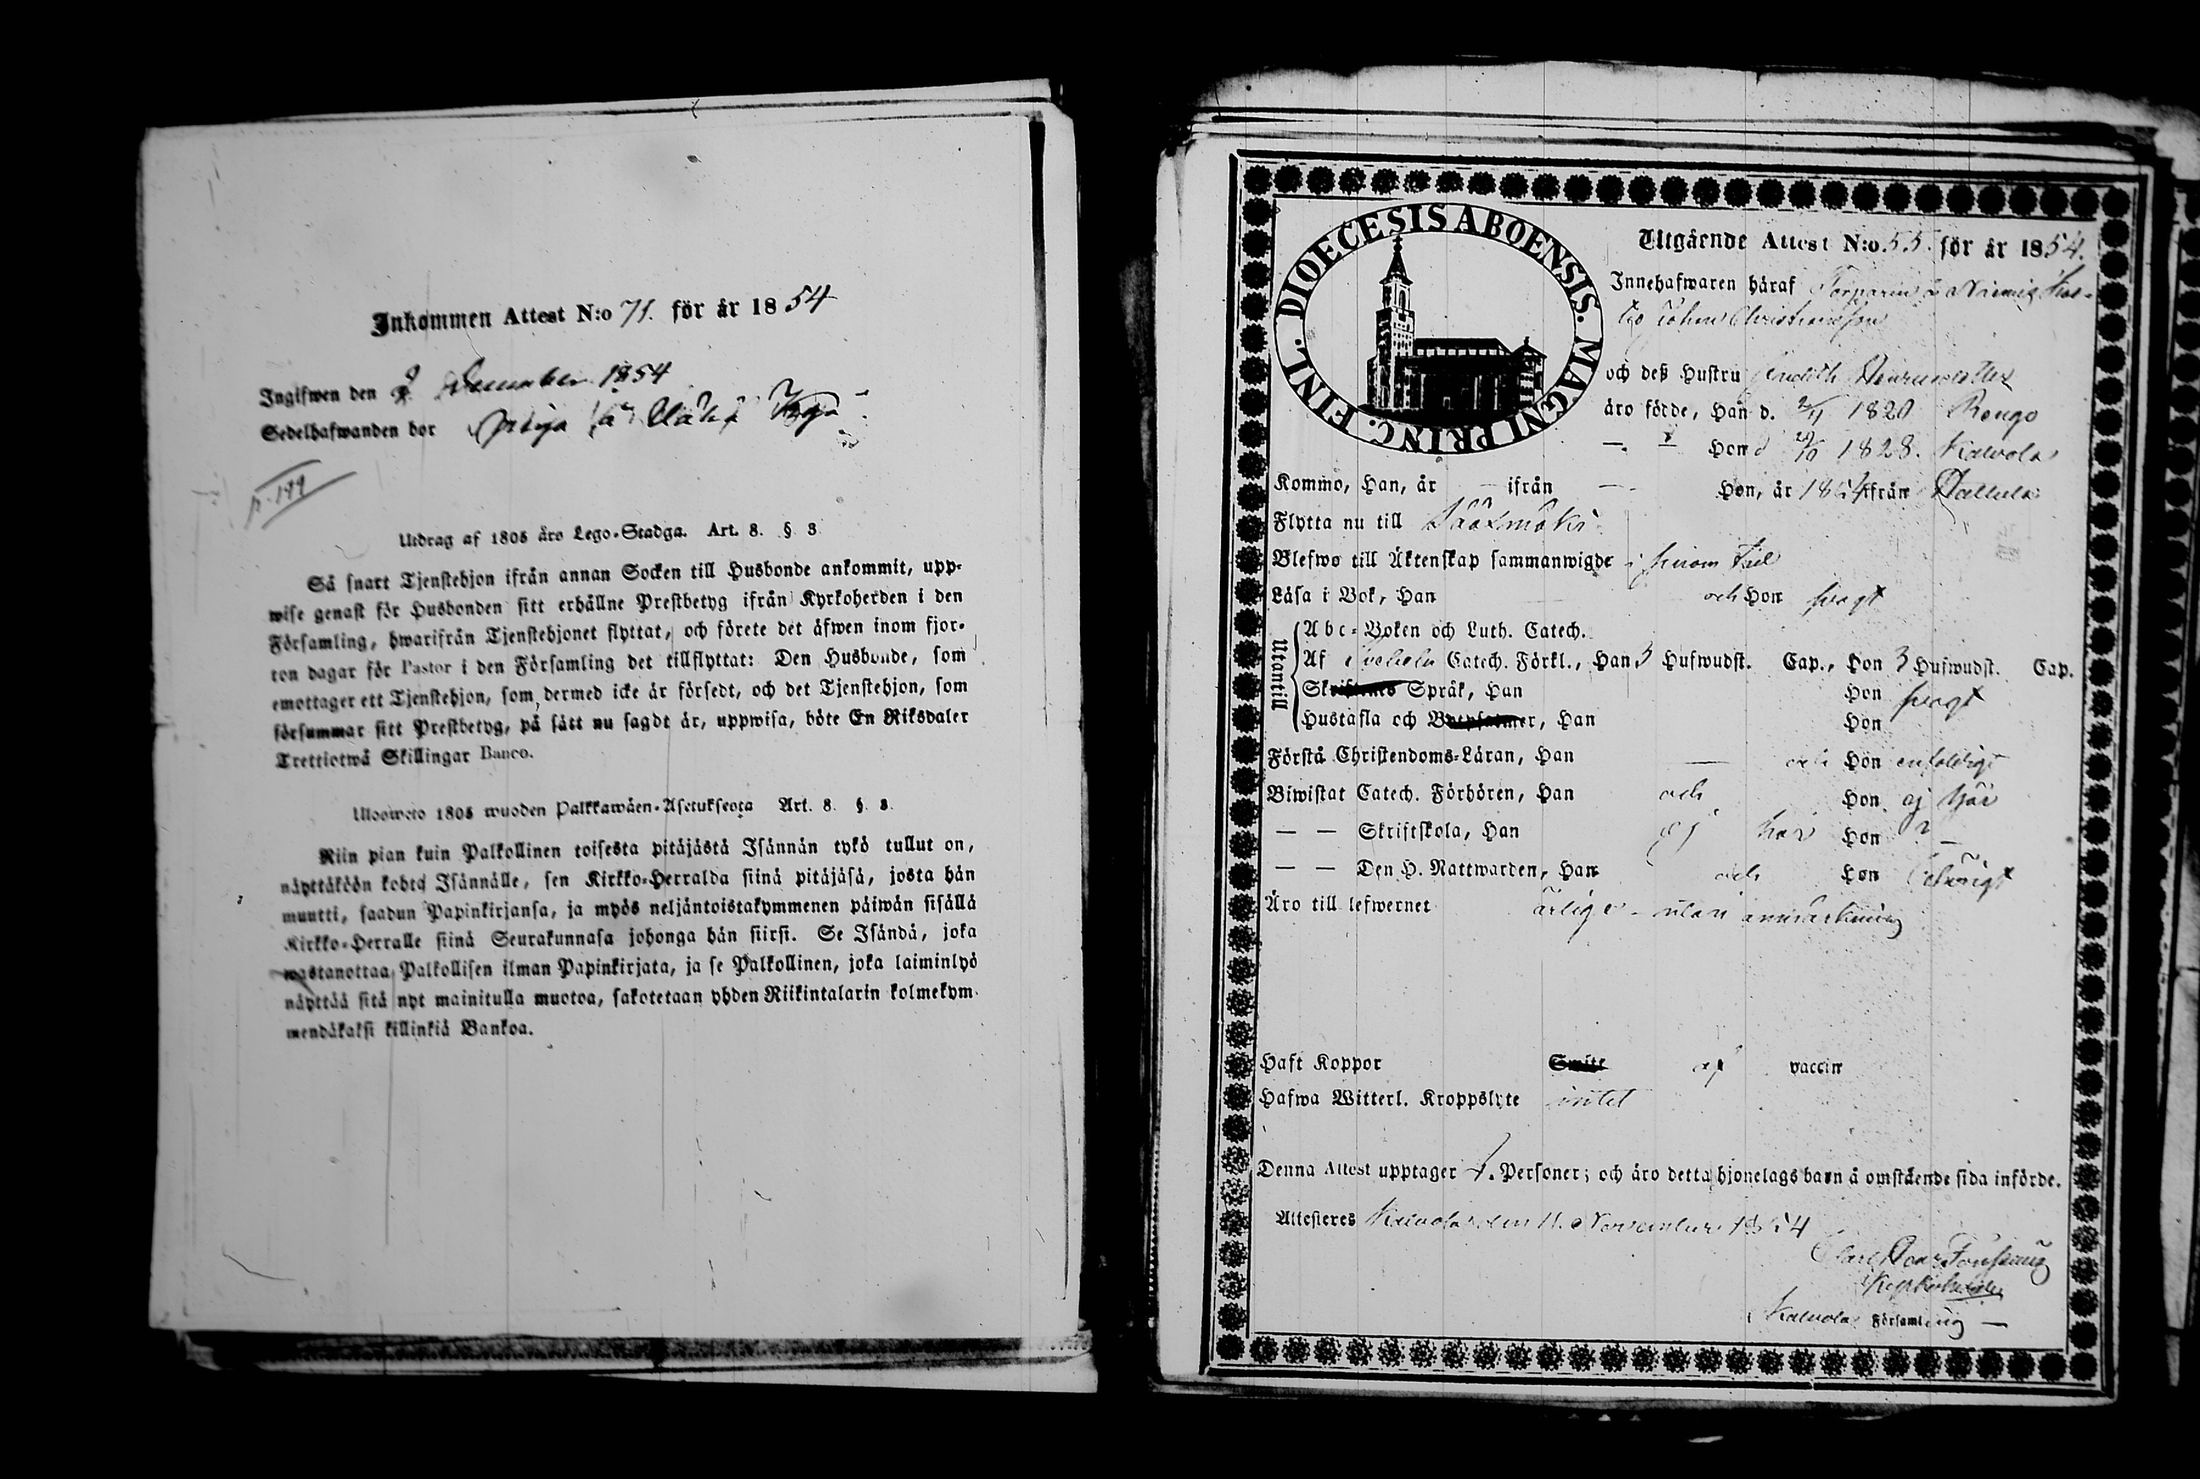 Inkommen Attest N:o 71. för år 1854
Ingifwen den 2 December 1854
Sedelhafwanden bor
p. 199
Utdrag af 1805 års Lego-Stadga. Art. 8. § 3
Så snart Tjenstehjon ifrån annan Socken till Husbonde ankommit, upp-
wise genast för Husbonden sitt erhållne Prestbetyg ifrån Kyrkoherden i den
Församling, hwarifrån Tjenstehjonet flyttat, och förete det äfwen inom fjor-
ton dagar för Pastor i den Församling det tillflyttat: Den Husbonde, som
emottager ett Tjenstehjon, som dermed icke är försedt, och det Tjenstehjon, som
försummar sitt Prestbetyg, på sätt nu sagdt är, uppwisa, böte En Riksdaler
Trettiotwå Skillingar Banco.
Uloswoto 1805 wuoden Palkkawäen-Asetuksesta Art. 8. § 3.
Niin pian kuin Palkollinen toisesta pitäjästä Isännän tykö tullut on,
näyttäköön kohta Isännälle, sen Kirkko-Herralda siinä pitäjäsä, josta hän
muutti, saadun Papinkirjansa, ja myös neljäntoistakymmenen päiwän sisällä
Kirkko-Herralle siinä Seurakunnasa johonga hän siirsi. Se Isändä, joka
wastanottaa Palkollisen ilman Papinkirjata, ja se Palkollinen, joka laiminlyö
näyttää sitä nyt mainitulla muotoa, sakotetaan yhden Riikintalarin kolmekym-
mendäkaksi killinkiä Bankoa.
DIOECESIS ABOENSIS. MAGNI PRINC. FINL.
Utgående Attest N:o 55. för år 1854.
Innehafwaren häraf Torparen
Johan Christiansson
och deß Hustru Judith Henricsdotter
äro födde, Han d. 1820 Rengo
Hon d 1828. Kalvola
Kommo, Han, år — ifrån — Hon, år 1854 ifrån Hattula
Flytta nu till Sääxmäki
Blefwo till Äktenskap sammanwigde
Läsa i Bok, Han och Hon svagt
Utantill
Abc-Boken och Luth. Catech.
Af Svebelii Catech. Förkl., Han 3 Hufwudst. Cap., Hon 3 Hufwudst. Cap.
Skriftenes Språk, Han Hon svagt
Hustafla och Botpsalmer, Han Hon
Förstå Christendoms-Läran, Han — och Hon enfaldigt
Biwistat Catech. Förhören, Han och Hon ej här
— — Skriftskola, Han ej här Hon
— — Den H. Nattwarden, Han och Hon
Äro till lefwernet ärlige utan anmärkning
Haft Koppor Smitt af vaccin
Hafwa Witterl. Kroppslyte intet
Denna Attest upptager Personer; och äro detta hjonelags barn å omstående sida införde.
Attesteres Kalvola den 11. November 1854
Kalvola Församling —